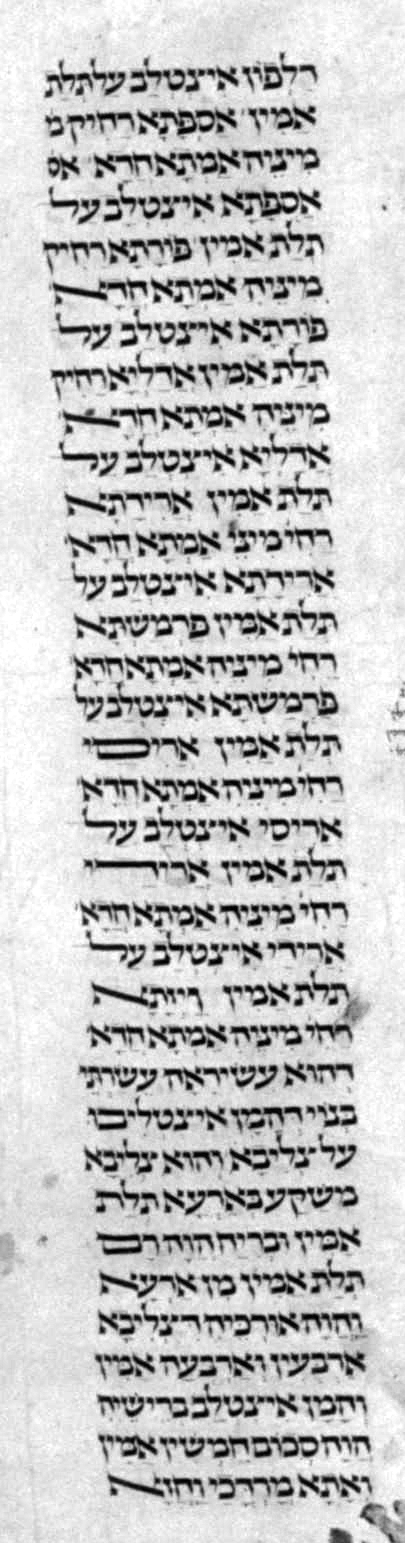 דלפון איצטלב על תלת
אמין אספתא רחיק מ
מיניה אמתא חדא אס
אספתא איצטלב על
תלת אמין פורתא רחיק
מיניה אמתא חדא
פורתא איצטלב על
תלת אמין אדליא רחיק
מיניה אמתא חדא
אדליא איצטלב על
תלת אמין ארידתא
רחי מיני אמתא חדא
ארידתא איצטלב על
תלת אמין פרמשתא
רחי מיניה אמתא חדא
פרמשתא איצטלב על
תלת אמין אריסי
רחי מיניה אמתא חדא
אריסי איצטלב על
תלת אמין ארידי
רחי מיניה אמתא חדא
ארידי איצטלב על
תלת אמין ויזתא
רחי מיניה אמתא חדא
דהוא עשיראה עשרתי
בנוי דהמן איצטליבו
על צליבא והוא צליבא
משקע בארעא תלת
אמין ובריח הוה רם
תלת אמין מן ארעא
והוה אורכיה דצליבא
ארבעין וארבעה אמין
והמן איצטלב ברישיה
הוה סכום חמשין אמין
ואתא מרדכי וחזא